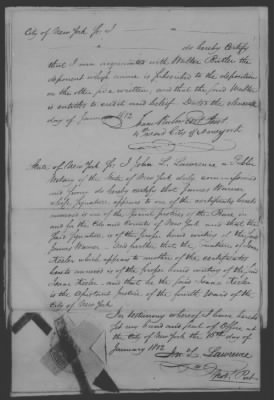 City of New York Ss. I
do hereby Certify
that I am acquainted with Walter Butler the
deponent whose name is subscribed to the deposition
on the other side written, and that the said Walter
is entitled to credit and belief. Dated the
day of January 1812.
Isaac Keeler Asst Just
4 Ward City of New York
State of New York Ss. I John L. Lawrence a Public
Notary of the State of New York duly commissioned
and sworn do hereby certify that James Warner
whose signature appears to one of the certificates hereto
annexed is one of the Special Justices of the Peace in
and for the City and County of New York and that the
said signature is of the proper hand writing of the said
James Warner. And further that the signature of Isaac
Keeler which appears to another of the certificates
hereto annexed is of the proper hand writing of the said
Isaac Keeler. and that he the said Isaac Keeler
is the Assistant Justice of the fourth Ward of the
City of New York.
In testimony whereof I have hereto
set my hand and seal of Office at
the City of New York the 15th day of
January 1812
Jn. L. Lawrence
Not. Pub.